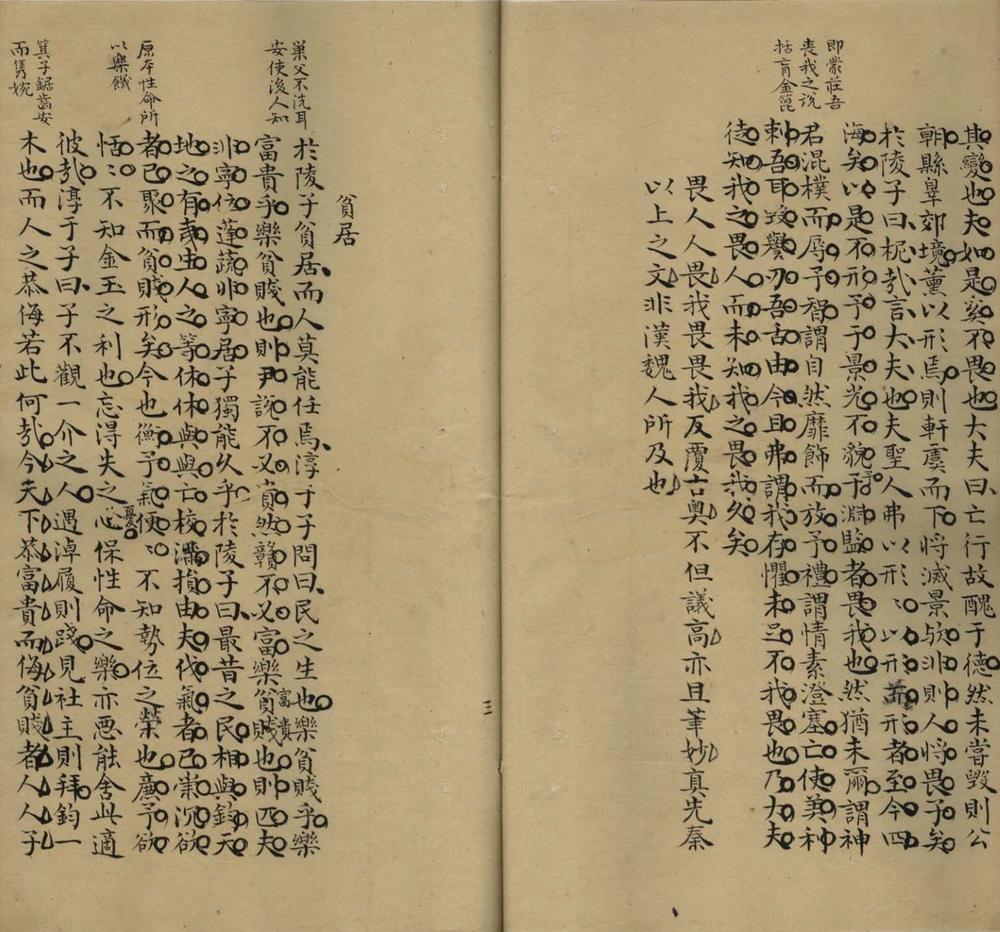 即蒙莊吾
喪我之說
括肓金篦
其變也夫如是奚不畏也大夫曰亡行故醜于德然未嘗毀則公
朝縣皐郊境薰以形焉則軒虞而下將滅景欤非則人將畏予矣
於陵子曰柅哉言大夫也夫聖人弗以形〻以形而形者至今四
海矣以是不形予于景光不貌予于淵監者畏我也然猶未爾謂神
君混樸而辱予智謂自然靡飾而放予禮謂情素澄塞亡使葬种
刺吾耳毀譽刃吾舌由今且弗謂我存懼未足不我畏也乃大夫
徒知我之畏人而未知我之畏我久矣
畏人人畏我畏畏我反覆古奧不但議高亦且筆妙真先秦
以上之文非漢魏人所及也
三
巢父不洗耳
安使後人知
原本性命所
以樂饑
箕子鋸齒安
而雋婉
貧居
於陵子貧居而人莫能任焉淳于子問曰民之生也樂貧賤乎樂
富貴乎樂貧賤也則尹說不乂賁然贛不乂富樂富貴貧賤也則匹夫
非寧位蓬蔬非寧居子獨能久乎於陵子曰最昔之民相與鈞天
地之有或生人之等休休與與亡校滿損由夫伐氣者已崇沉欲
者已聚而貧賤形矣今也衡予氣便〻不知勢位之榮也廉予欲
恬〻不知金玉之利也忘得失之心保性命之樂亦惡能舍此適
彼哉淳于子曰子不觀一介之人遇淖履則踐見社主則拜鈞一
木也而人之恭侮若此何哉今夫下恭富貴而侮貧賤者人人子